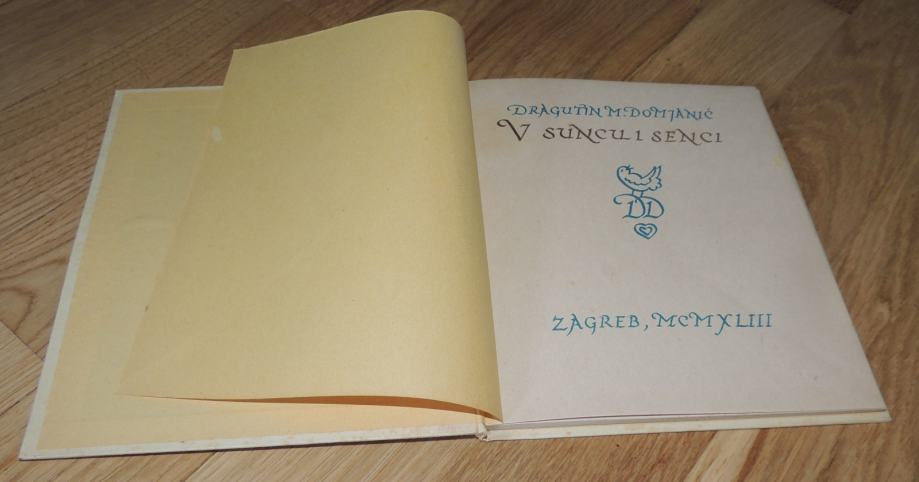 DRAGUTIN M. DOMJANIĆ
V SUNCU I SENCI
DD
ZAGREB, MCMXLIII